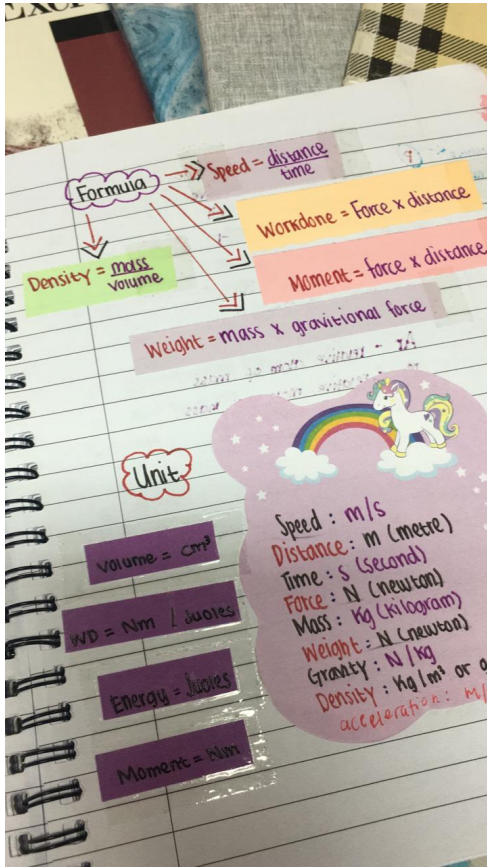 Formula
Speed = distance
time
Workdone = Force x distance
Moment = force x distance
Density = mass
volume
Weight = mass x gravitional force
Unit
Volume = cm³
WD = Nm / Juoles
Energy = Juoles
Moment = Nm
Speed : m/s
Distance : m (metre)
Time : s (second)
Force : N (newton)
Mass : Kg (Kilogram)
Weight : N (newton)
Gravity : N/Kg
Density : Kg/m³ or
acceleration : m/